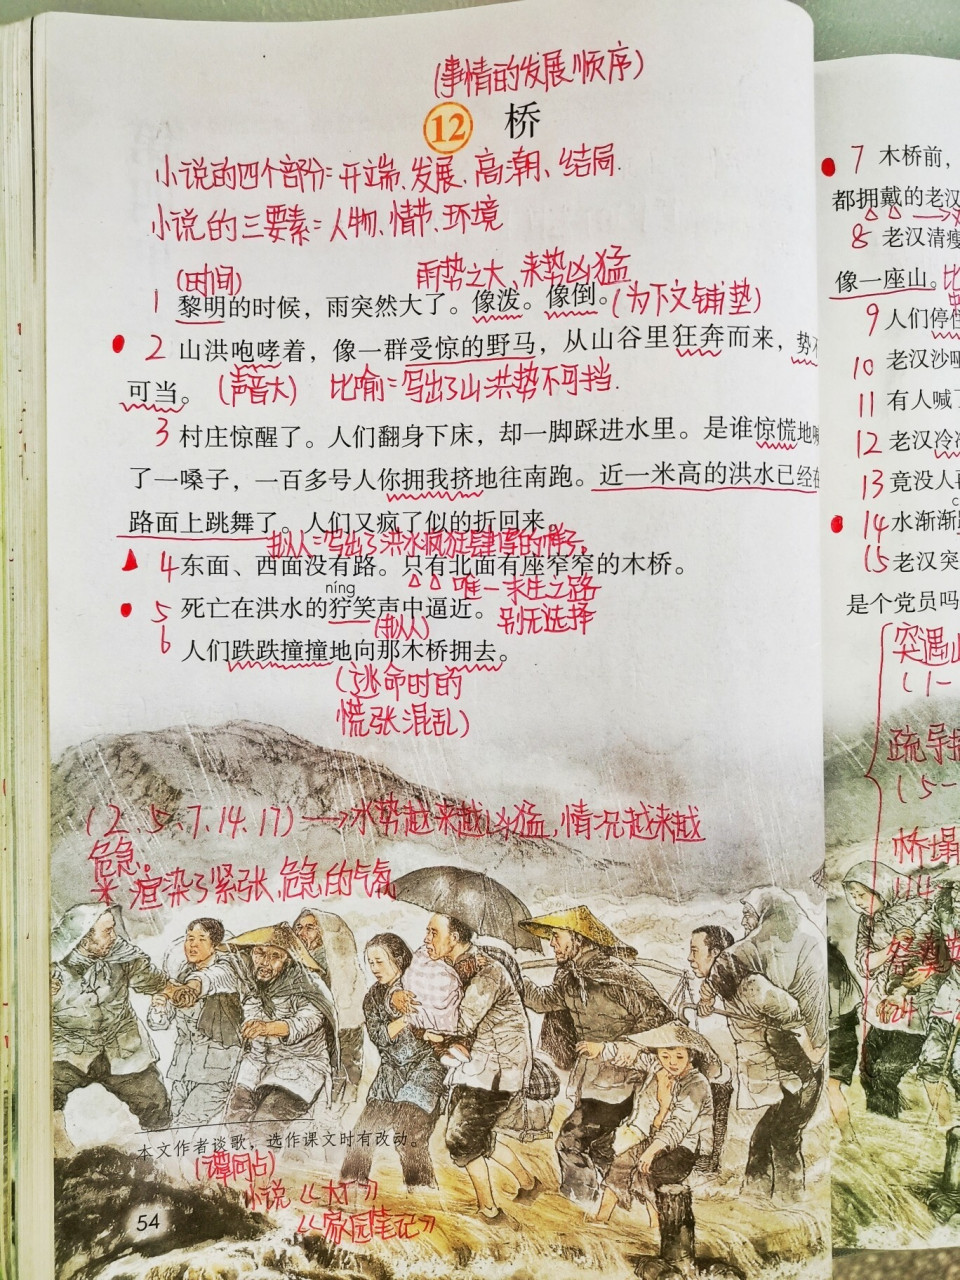 (事情的发展顺序)
12 桥
小说的四个部分:开端、发展、高潮、结局.
小说的三要素:人物、情节、环境
(时间) 雨势之大、来势凶猛
1 黎明的时候，雨突然大了。像泼。像倒。(为下文铺垫)
2 山洪咆哮着，像一群受惊的野马，从山谷里狂奔而来，势不
可当。(声音大) 比喻:写出了山洪势不可挡.
3 村庄惊醒了。人们翻身下床，却一脚踩进水里。是谁惊慌地喊
了一嗓子，一百多号人你拥我挤地往南跑。近一米高的洪水已经在
路面上跳舞了。人们又疯了似的折回来。
拟人:写出了洪水疯狂肆虐的样子。
4 东面、西面没有路。只有北面有座窄窄的木桥。
níng 唯一求生之路
5 死亡在洪水的狞笑声中逼近。 别无选择
(拟人)
6 人们跌跌撞撞地向那木桥拥去。
(逃命时的
慌张混乱)
(2、5、7、14、17)→水势越来越凶猛,情况越来越
危急。
* 渲染了紧张、危急的气氛
本文作者谈歌，选作课文时有改动。
(谭同占)
小说《大厂》
《家园笔记》
54
7 木桥前，
都拥戴的老汉
8 老汉清瘦
像一座山。比
9 人们停住
10 老汉沙哑
11 有人喊了
12 老汉冷冷
13 竟没人再
14 水渐渐
15 老汉突
是个党员吗
突遇山
(1-
疏导
(5-
桥塌
(14
祭奠
(24-